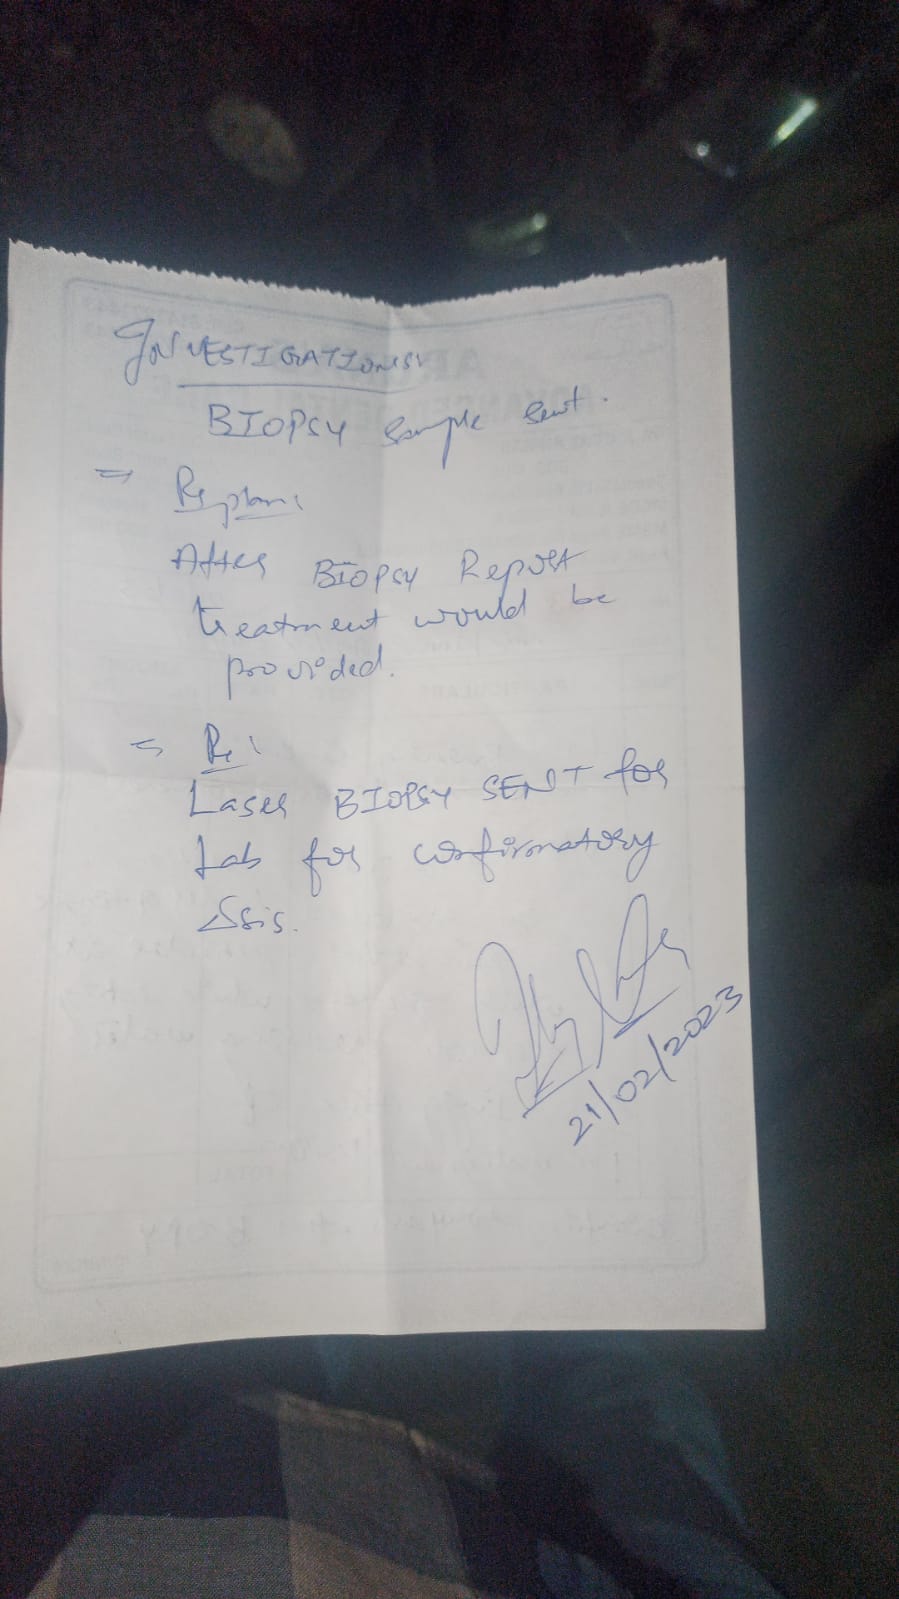 INVESTIGATIONS:
BIOPSY sample sent.
= Rx plan:
After BIOPSY Report
treatment would be
provided.
= Rx:
Laser BIOPSY SENT for
Lab for confirmatory
ΔSis.
21/02/2023